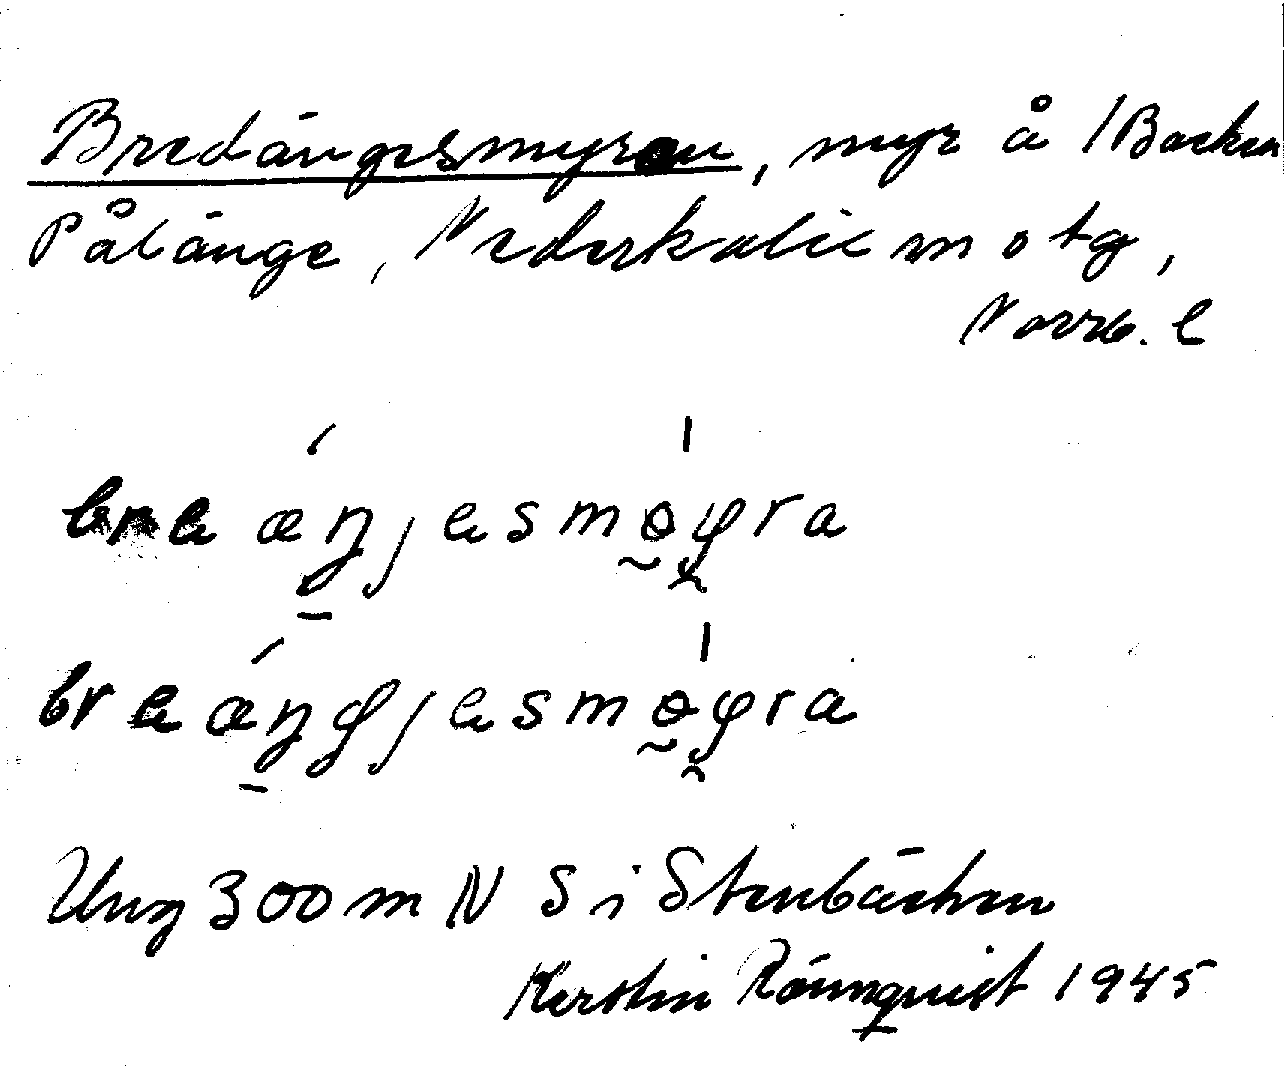 Bredängesmyran, myr å 1 Backen
Pålänge, Nederkalix m o tg,
Norrb. l
breæŋjesmɵyra
breæŋgjesmɵyra
Ung 300 m N S i Stenbäcken
Kerstin Rönnquist 1945